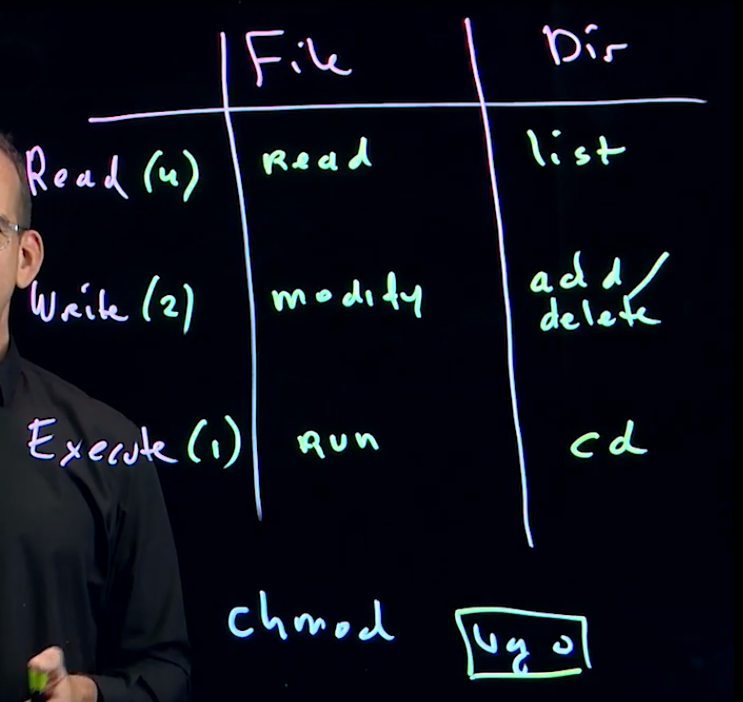 File Dir
Read (4) Read list
Write (2) modify add/
delete
Execute (1) Run cd
chmod ugo